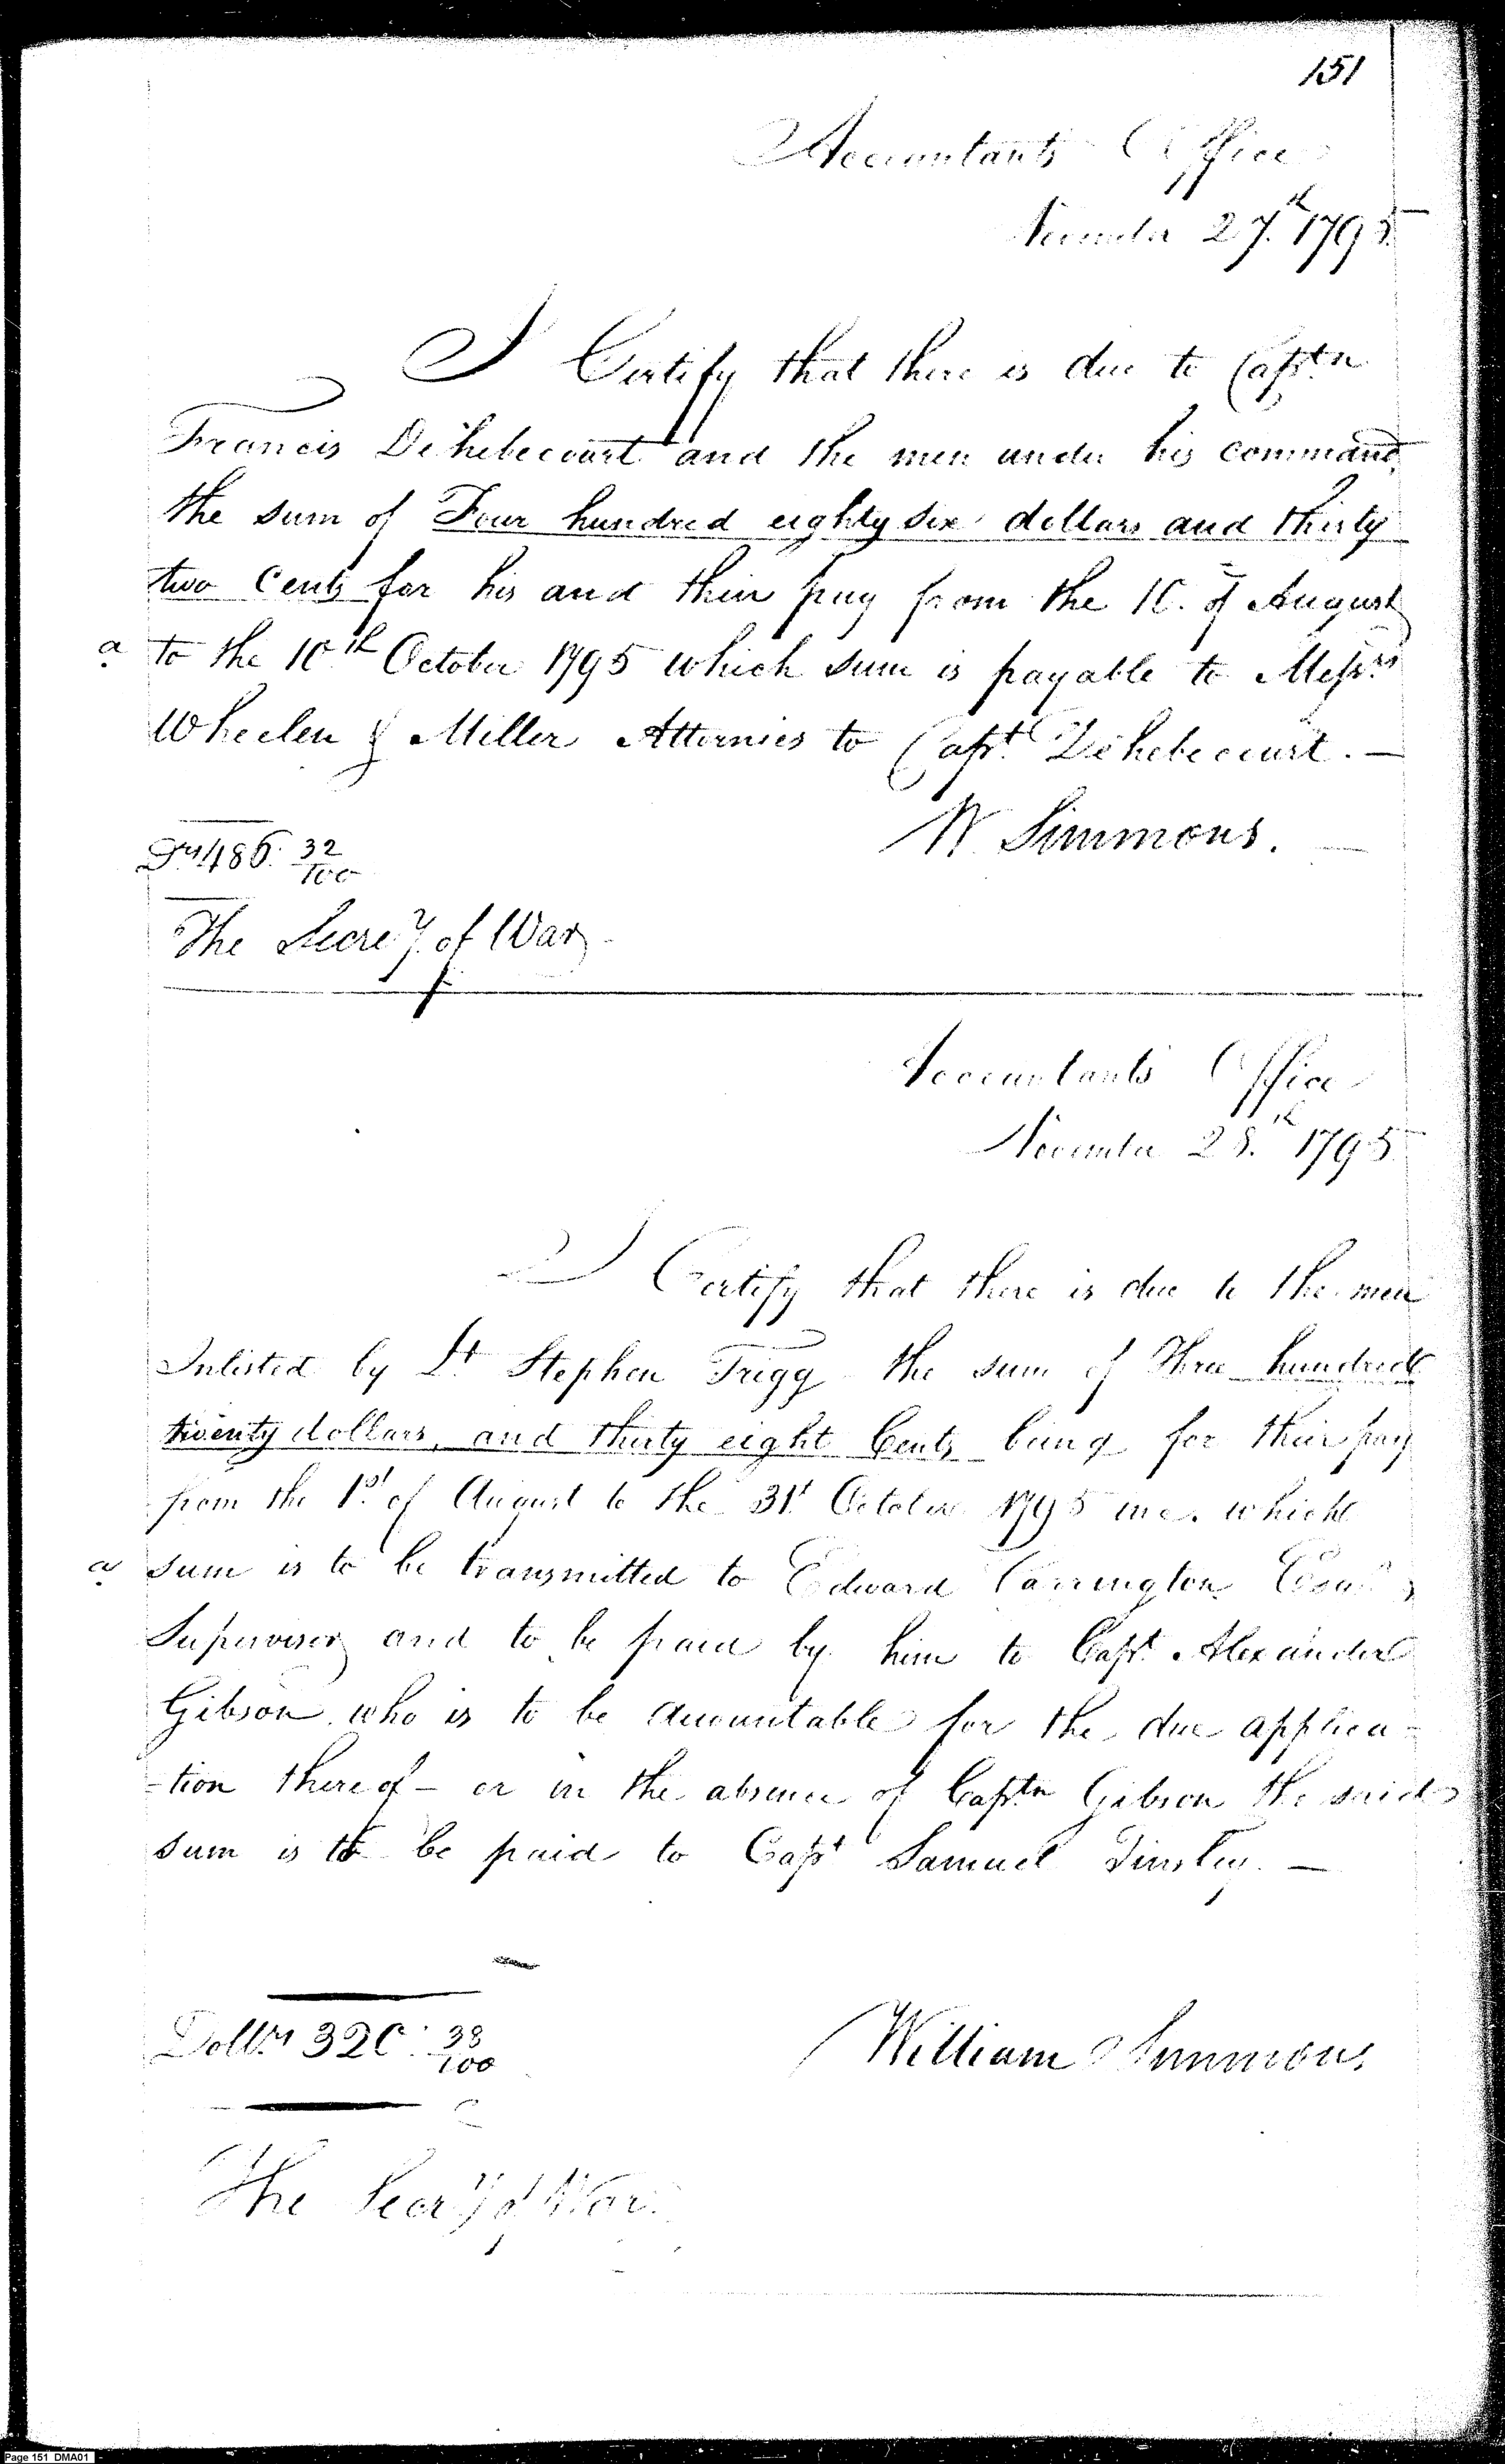 151
Accountants Office
November 27th 1795
I Certify that there is due to Captn
Francis Dehebecourt and the men under his command,
the sum of Four hundred eighty six dollars and thirty
two Cents for his and their pay from the 10th of August
a to the 10th October 1795 which sum is payable to Messrs
Wheelen & Miller Attornies to Capt Dehebecourt. —
W. Simmons. —
486. 32/100
The Secrey of War
Accountants Office
November 28th 1795
I Certify that there is due to the men
Inlisted by Lt Stephen Trigg the sum of Three hundred
twenty dollars, and thirty eight Cents being for their pay
from the 1st of August to the 31st October 1795 inc. which
a sum is to be transmitted to Edward Carrington Esqr
Supervisor and to be paid by him to Capt Alexander
Gibson who is to be accountable for the due applica-
-tion thereof - or in the absence of Captn Gibson the said
sum is to be paid to Capt Samuel Tinsley. —
Dollrs 320. 38/100
William Simmons
The Secry of War.
Page 151 DMA01